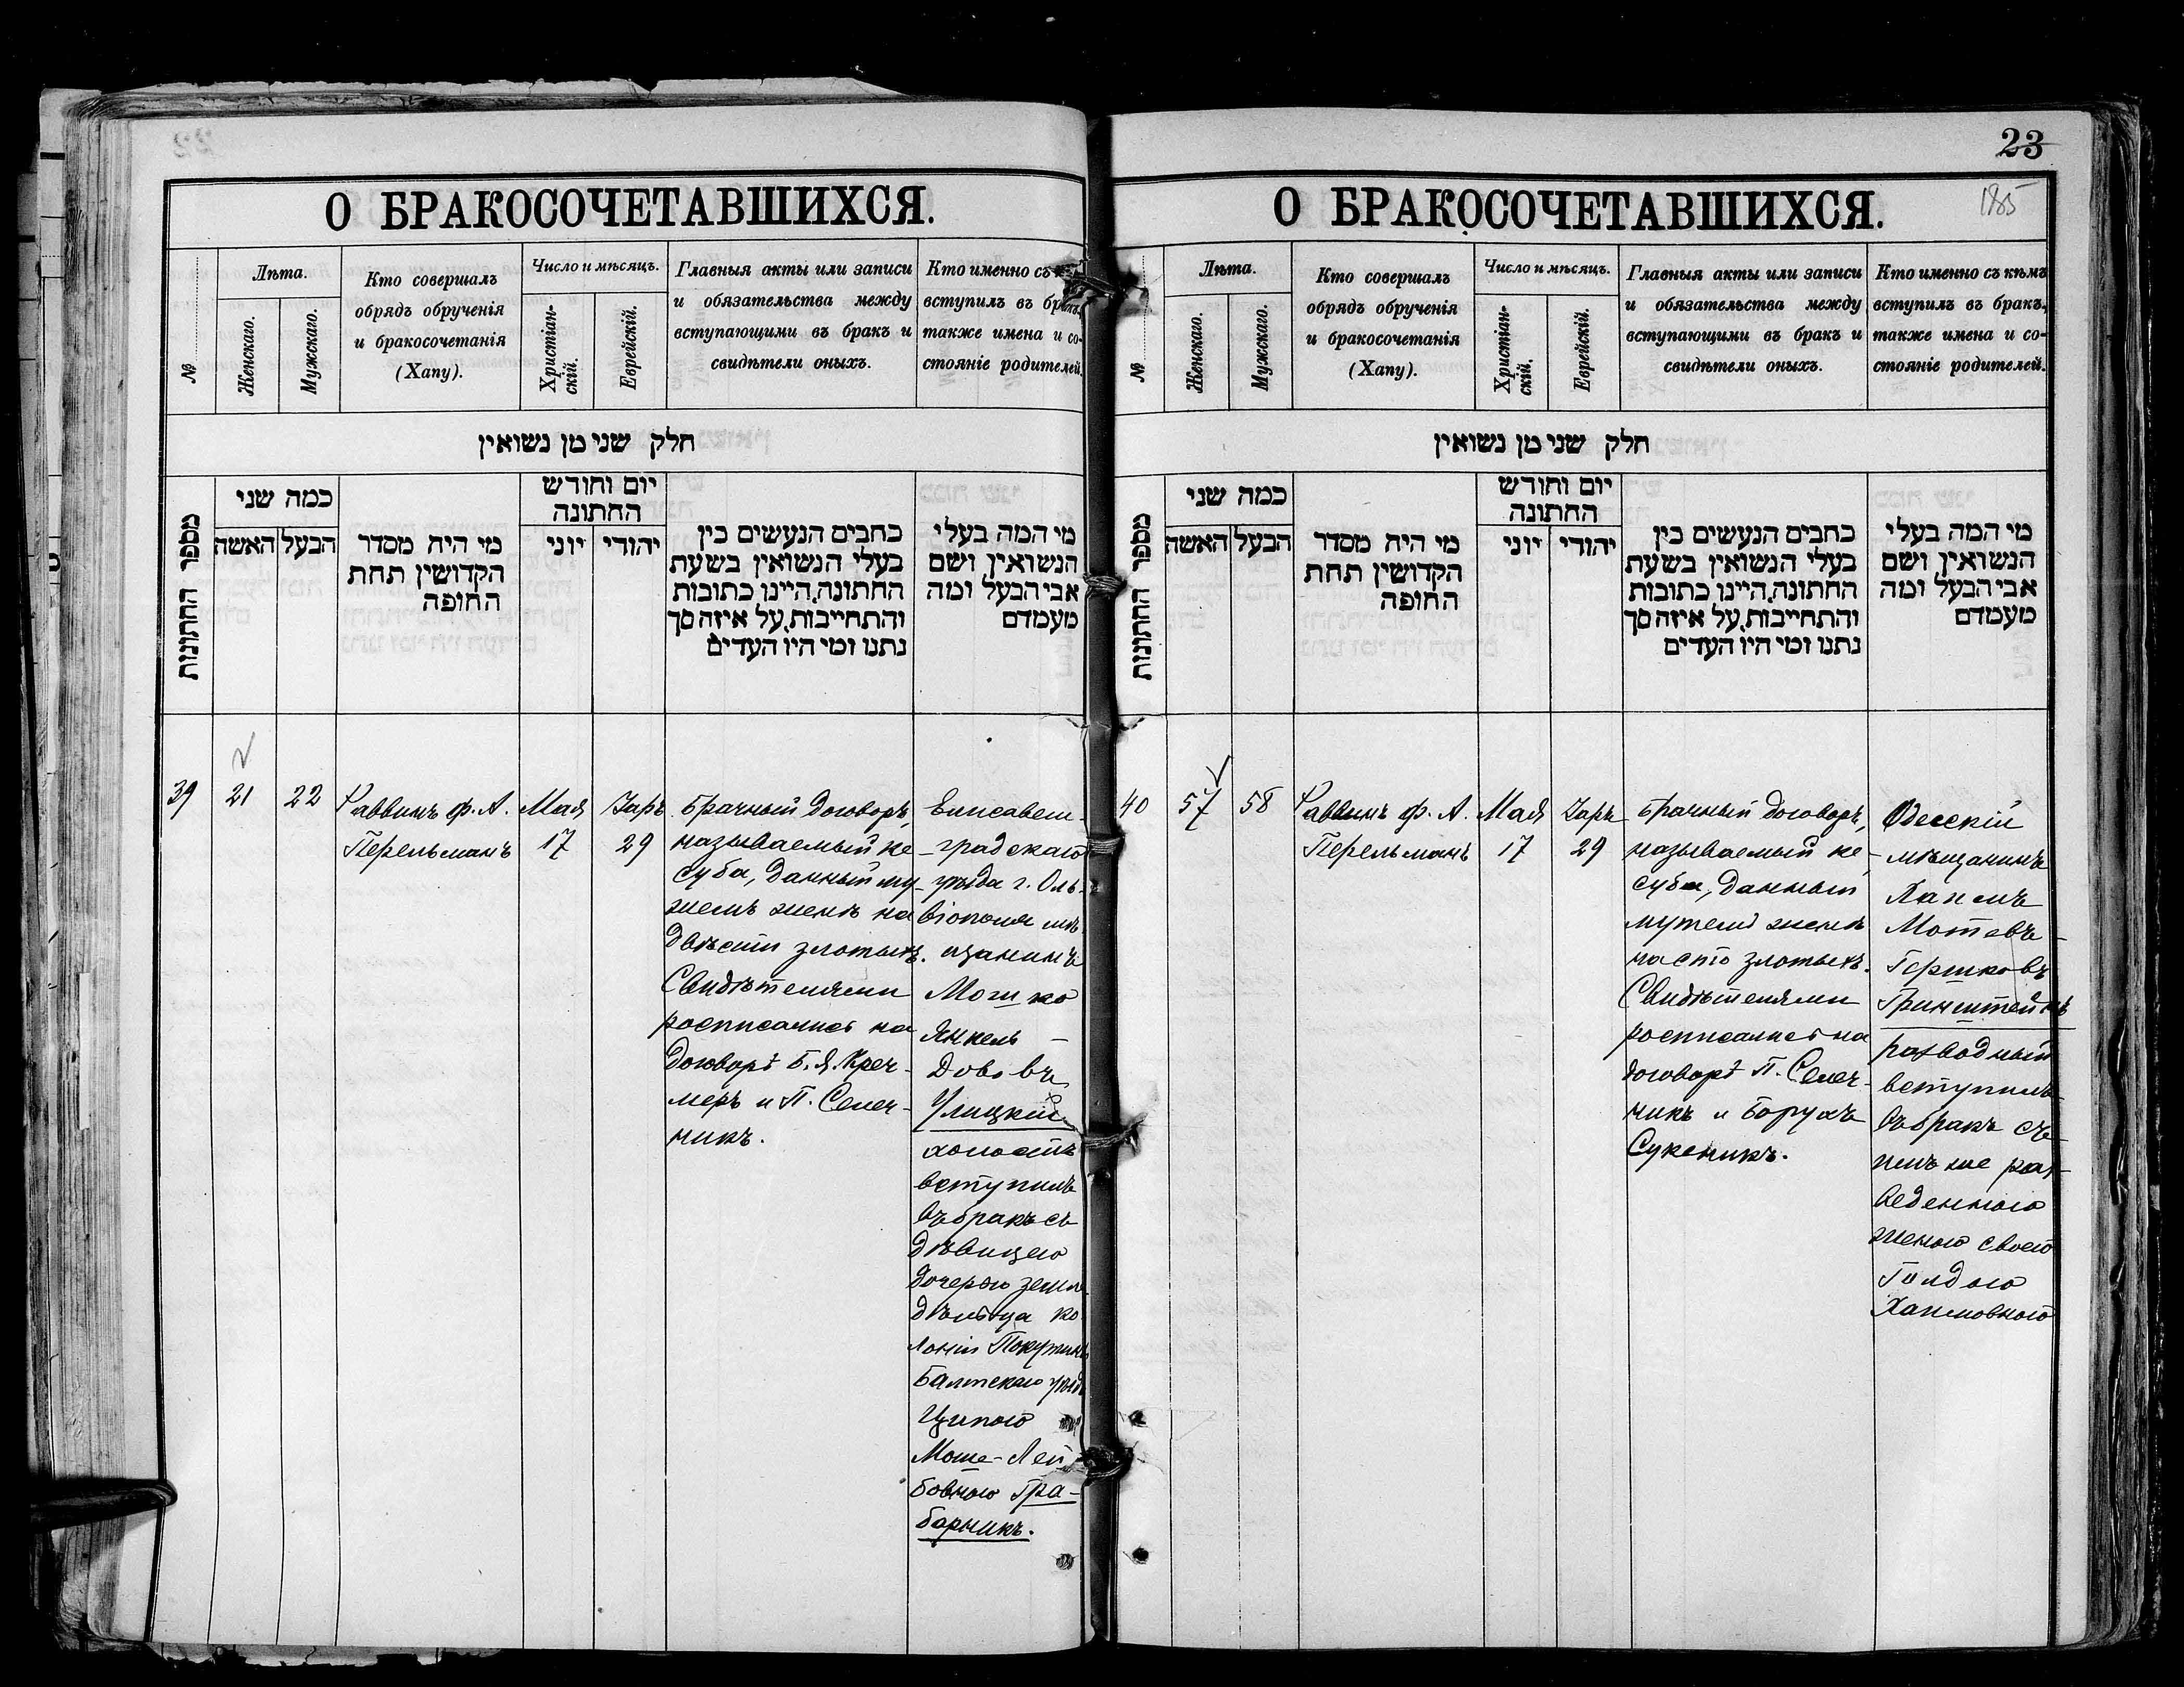 23
1885
О БРАКОСОЧЕТАВШИХСЯ.
№
Лѣта.
Женскаго.
Мужскаго.
Кто совершалъ
обрядъ обрученія
и бракосочетанія
(Хапу).
Число и мѣсяцъ.
Христіан-
скій.
Еврейскій.
Главныя акты или записи
и обязательства между
вступающими въ бракъ и
свидѣтели оныхъ.
Кто именно съ
вступилъ въ бракъ,
также имена и со-
стояніе родителей.
חלק שני מן נשואין
מספר החתונות
כמה שני
האשה
הבעל
מי היה מסדר
הקדושין תחת
החופה
יום וחודש
החתונה
יוני
יהודי
כתבים הנעשים בין
בעלי הנשואין בשעת
החתונה, היינו כתובות
והתחייבות, על איזה סך
נתנו ומי היו העדים
מי המה בעלי
הנשואין ושם
אבי הבעל ומה
מעמדם
39
21
22
Раввинъ Ф. А.
Перельманъ
Мая
17
Іаръ
29
Брачный договоръ,
называемый ке-
суба, данный му-
жемъ женѣ на
двѣсти злотыхъ.
Свидѣтелями
росписались на
договорѣ Б. Я. Креч-
меръ и П. Селеч-
никъ.
Елисавет-
градскаго
уѣзда г. Оль-
віополя мѣ-
щанинъ
Мошко
Янкель
Дововъ
Улицкій
холостъ
вступилъ
въ бракъ съ
дѣвицею
дочерью земле-
дѣльца ко-
лоніи Покутина
Балтскаго уѣзда
Ципою
Моше-Лей-
бовною Гра-
барникъ.
О БРАКОСОЧЕТАВШИХСЯ.
№
Лѣта.
Женскаго.
Мужскаго.
Кто совершалъ
обрядъ обрученія
и бракосочетанія
(Хапу).
Число и мѣсяцъ.
Христіан-
скій.
Еврейскій.
Главныя акты или записи
и обязательства между
вступающими въ бракъ и
свидѣтели оныхъ.
Кто именно съ кѣмъ
вступилъ въ бракъ,
также имена и со-
стояніе родителей.
חלק שני מן נשואין
מספר החתונות
כמה שני
האשה
הבעל
מי היה מסדר
הקדושין תחת
החופה
יום וחודש
החתונה
יוני
יהודי
כתבים הנעשים בין
בעלי הנשואין בשעת
החתונה, היינו כתובות
והתחייבות, על איזה סך
נתנו ומי היו העדים
מי המה בעלי
הנשואין ושם
אבי הבעל ומה
מעמדם
40
57
58
Раввинъ Ф. А.
Перельманъ
Мая
17
Іаръ
29
Брачный договоръ,
называемый ке-
суба, данный
мужемъ женѣ
на сто злотыхъ.
Свидѣтелями
росписались на
договорѣ П. Селеч-
никъ и Борухъ
Сукеникъ.
Одесскій
мѣщанинъ
Хаимъ
Мотевъ-
Гершковъ
Гринштейнъ
разводный
вступилъ
въ бракъ съ
нимъ же раз-
веденною
женою своею
Голдою
Хаимовною